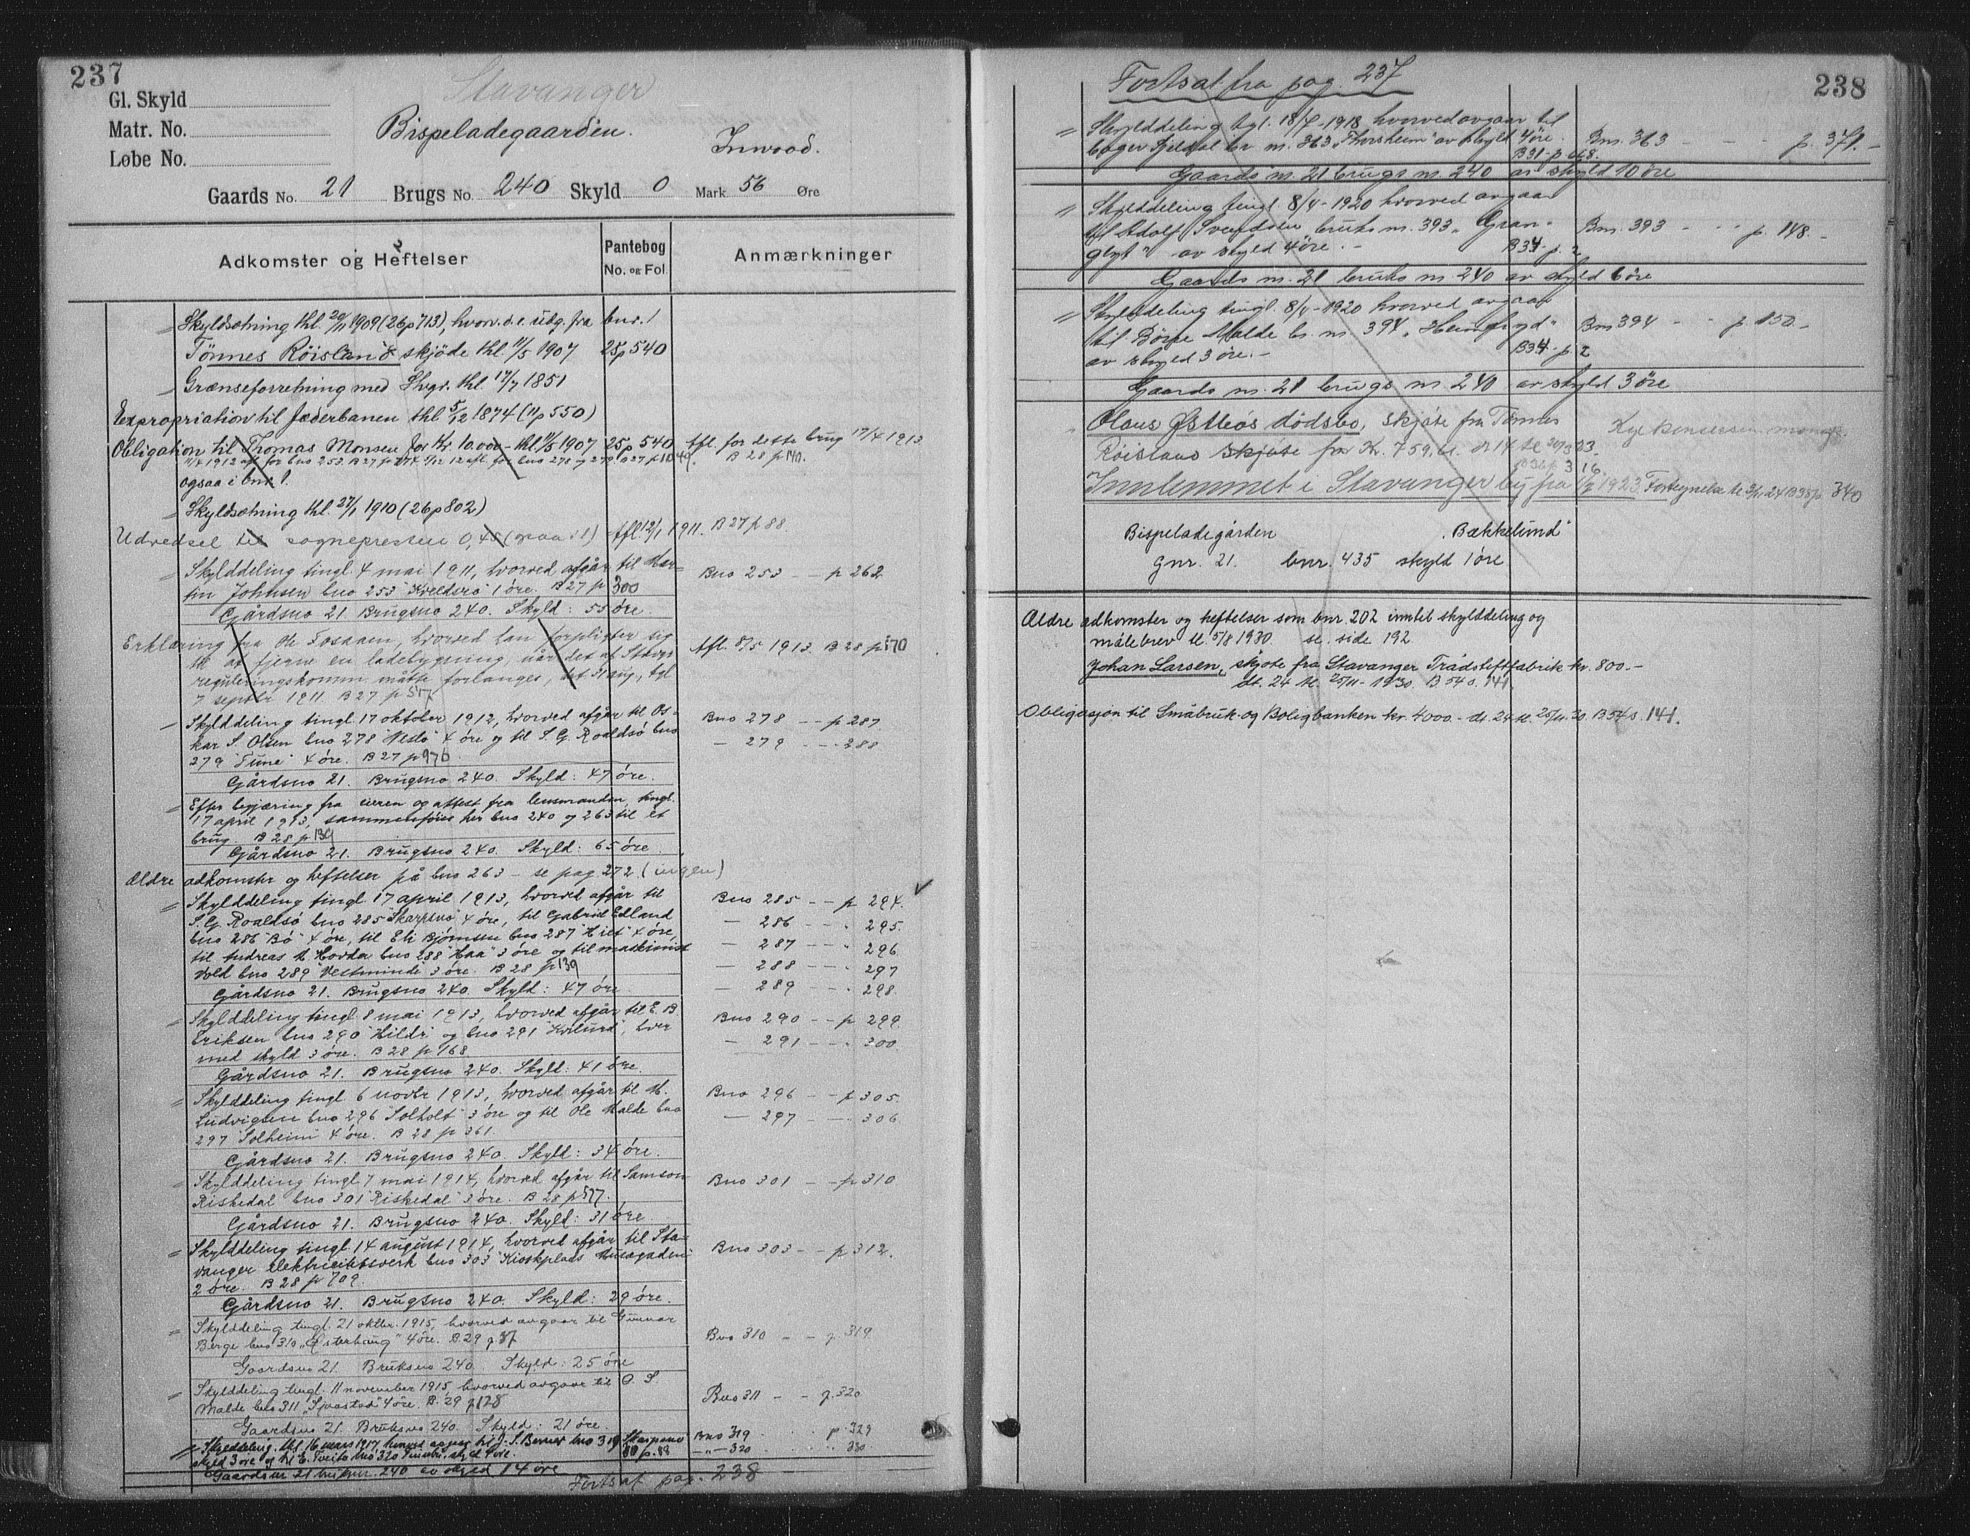 237
Stavanger
Gl. Skyld
Matr. No.
Løbe No.
Bispeladegaarden.
Inwood.
Gaards No. 21 Brugs No. 240 Skyld 0 Mark 56 Øre
Adkomster og Heftelser
Pantebog
No. og Fol.
Anmærkninger
Skyldsætning thl. 20/11 1909 (26p713), hvorv. d. e. udg. fra bnr. 1
Tønnes Röisland skjöde thl 11/5 1907 25p540
Grænseforretning med Stvgr. thl. 17/7 1851
Expropriation til Jæderbanen thl 5/12 1874 (11p550)
Obligation til Thomas Monsen for Kr. 10.000 - thl 11/5 1907 25p540 Afl. for dette brug 17/4 1913
B 28 p 140.
ogsaa i bnr 1.
Skyldsætning thl. 27/1 1910 (26p802)
Udredsel til sognepresten 0,45 (ogsaa i 1) Afl. 12/1 1911. B 27 p 88.
Skylddeling tingl. 4 mai 1911, hvorved afgår til Mar-
tin Johnsen bno 253 "Kveldsro" 1 öre. B 27 p 300
Bno 253 - - p 262
Gårdsno 21. Brugsno 240. Skyld: 55 öre.
Erklæring fra Ole Tosaam, hvorved han forpligter sig
til at fjerne en ladebygning, når det af Stavgs
reguleringskomm. måtte forlanges,
7 septbr 1911 B 27 p 577
Afl. 8/5 1913. B 28 p 170
Skylddeling tingl. 17 oktober 1912, hvorved afgår til Os-
kar S. Olsen bno 278 "Veslo" 4 öre og til S. G. Roaldsö bno
279 "Tune" 4 öre. B 27 p 976
Bno 278 - - p 287
— 279 - - - 288
Gårdsno 21. Brugsno 240. Skyld: 47 öre.
Efter begjæring fra eieren og attest fra lensmanden, tingl.
17 april 1913, sammenföies her bno 240 og 263 til et
brug. B 28 p 139
Gårdsno 21. Brugsno 240. Skyld: 65 öre.
Ældre adkomster og heftelser på bno 263 - se pag 272 (ingen)
Skylddeling tingl. 17 april 1913, hvorved afgår til
S. G. Roaldsö bno 285 "Skarpsno" 4 öre, til Gabriel Edland
bno 286 "Bö" 4 öre, til Eli Björnsen bno 287 "Hilt" 4 öre,
til Andreas M. Hovda bno 288 "Haa" 3 öre og til maskinist
Vold bno 289 "Vestminde" 3 öre. B 28 p 139
Bno 285 - - p 294.
— 286 - - - 295.
— 287 - - - 296
— 288 - - - 297
— 289 - - - 298.
Gårdsno 21. Brugsno 240. Skyld: 47 öre.
Skylddeling tingl. 8 mai 1913, hvorved afgår til E. B.
Eriksen bno 290 "Hildr" og bno 291 "Kvilund", hver
med skyld 3 öre. B 28 p 168
Bno 290 - - p 299
— 291 - - - 300.
Gårdsno 21. Brugsno 240. Skyld: 41 öre.
Skylddeling tingl. 6 novbr 1913, hvorved afgår til M.
Ludvigsen bno 296 "Solholt" 3 öre og til Ole Malde bno
297 "Solheim" 4 öre. B 28 p 361.
Bno 296 - - p 305.
— 297 - - - 306
Gårdsno 21. Brugsno 240. Skyld: 34 öre.
Skylddeling tingl. 7 mai 1914, hvorved afgår til Samson
Riskedal bno 301 "Riskedal" 3 öre. B 28 p 577.
Bno 301 - - p 310
Gårdsno 21. Brugsno 240. Skyld: 31 öre.
Skylddeling tingl. 14 august 1914, hvorved afgår til Sta-
vanger elektricitetsverk bno 303 "Kioskplads Musægaden"
2 öre. B 28 p 709.
Bno 303 - - p 312.
Gårdsno 21. Brugsno 240. Skyld: 29 öre.
Skylddeling tingl. 21 oktbr. 1915, hvorved avgaar til Gunnar
Berge bno 310 "Østerhaug" 4 öre. B 29 p 87
Bno 310 - - p. 319
Gaardsno 21. Bruksno 240. Skyld: 25 öre
Skylddeling tingl. 11 november 1915, hvorved avgaar til O. S.
Malde bno 311 "Sjoastad" 4 öre. B. 29 p 128
Bno 311 - - p. 320
Gaardsno 21. Bruksno 240. Skyld: 21 öre.
Skylddeling thl. 16 mars 1917 hvorved avgaar til J. S. Berner bno 319 Skarpsno
skyld 3 öre og til E. Tveita bno 320 skyld 4 öre. 30 p. 88
Bno 319 p. 329
-"- 320 330
Gaardsnr 21 bruksnr. 240 av skyld 14 öre
Fortsat pag. 238
238
Fortsat fra pag. 237
Skylddeling tgl. 18/7-1918 hvorved avgaar til
br. nr. 363 "Thorsheim" av skyld 4 öre.
B 31 p. 68.
Bnr. 363 - - - p. 371.-
Gaards nr. 21 brugs nr. 240 av skyld 10 öre
Skylddeling tingl. 8/4-1920 hvorved avgaar
til Adolf Svendsen bruks nr. 393 "Gran-
glyt" av skyld 4 öre.-
B 34 p. 2
Bnr. 393 - - - p. 148.-
Gaards nr. 21 bruks nr. 240 av skyld 6 öre
Skylddeling tingl. 8/4-1920 hvorved avgaar
til Börre Malde br. nr. 394 "Heimhyd"
av skyld 3 öre.-
B 34 p. 2
Bnr 394 - - p. 150.-
Gaards nr. 21 brugs nr. 240 av skyld 3 öre
Olaus Østbös dödsbo, skjöte fra Tönnes
Röisland skjöte for Kr. 759,
p. 316.
Innlemmet i Stavanger by fra 1/7 1923. Fortegnelse tl. 3/1 24 B 38 p. 340
Bispeladegården "Bækkelund"
gnr. 21. bnr. 435 skyld 1 öre
Ældre adkomster og heftelser som bnr. 202 inntil skylddeling og
målebrev tl. 5/8 1930 se. side 192
Johan Larsen, skjöte fra Stavanger Trådstiftfabrik kr. 800.-
dt. 24 tl. 25/11-1930. B 54 s. 141.
Obligasjon til Småbruk og Boligbanken kr. 4000.- dt. 24 tl. 25/11.30. B 54 s. 141.